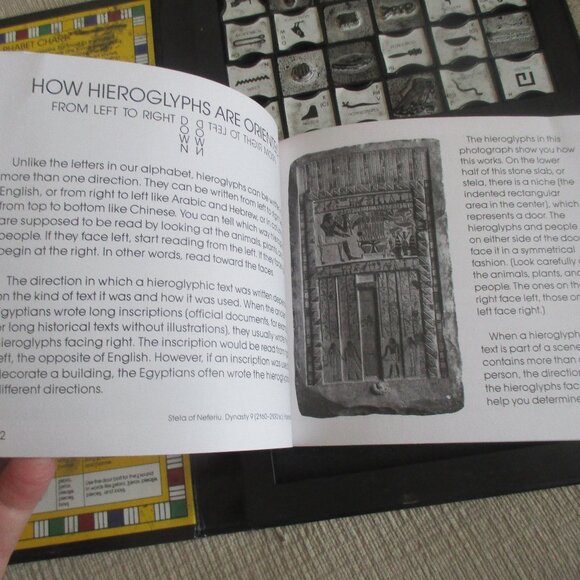 HABET CHART
HOW HIEROGLYPHS ARE ORIENT
FROM LEFT TO RIGHT
DOWN
DOWN
FROM RIGHT TO LEFT
Unlike the letters in our alphabet, hieroglyphs can be
more than one direction. They can be written from left to
English, or from right to left like Arabic and Hebrew, or in
from top to bottom like Chinese. You can tell which way
are supposed to be read by looking at the animals, plants,
people. If they face left, start reading from the left. If they
begin at the right. In other words, read toward the faces.
The direction in which a hieroglyphic text was written
on the kind of text it was and how it was used. When the
Egyptians wrote long inscriptions (official documents, for
or long historical texts without illustrations), they usually
hieroglyphs facing right. The inscription would be read from
left, the opposite of English. However, if an inscription was
decorate a building, the Egyptians often wrote the
different directions.
Stela of Neferiu. Dynasty 9
2
The hieroglyphs in this
photograph show you how
this works. On the lower
half of this stone slab, or
stela, there is a niche (the
indented rectangular
area in the center), which
represents a door. The
hieroglyphs and people
on either side of the door
face it in a symmetrical
fashion. (Look carefully
the animals, plants, and
people. The ones on the
right face left, those
left face right.)
When a hieroglyphic
text is part of a scene
contains more than
person, the direction
the hieroglyphs face
help you determine